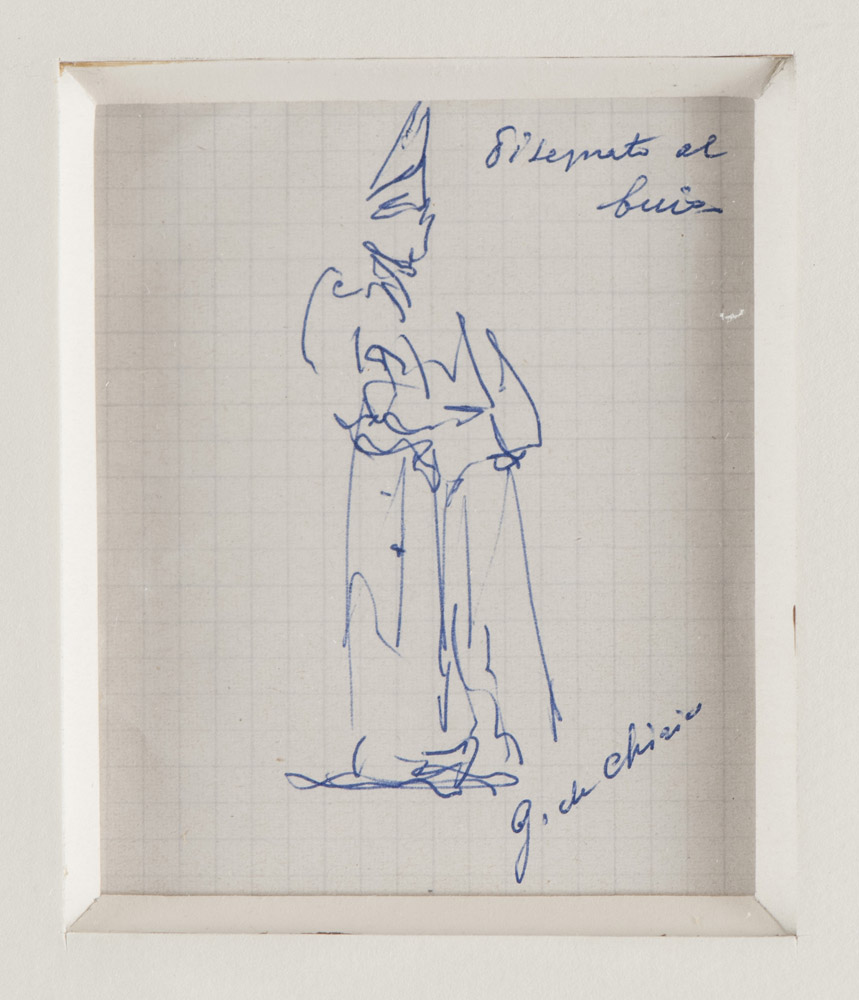 Disegnato al
buio
G. de Chirico